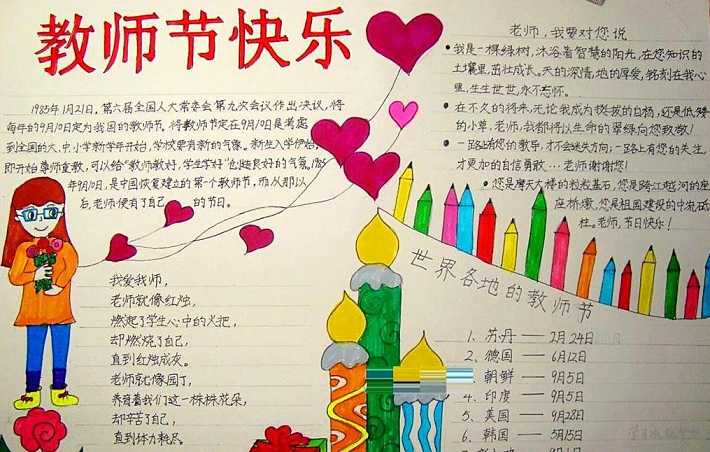 教师节快乐
1985年1月21日,第六届全国人大常委会第九次会议作出决议,将
每年的9月10日定为我国的教师节。将教师节定在9月10日是考虑
到全国的大、中小学新学年开始,学校要有新的气象。新生入学伊始,
即开始尊师重教,可以给"教师教好,学生学好"创造良好的气氛。1985
年9月10日,是中国恢复建立的第一个教师节,而从那以
后,老师便有了自己的节日。
我爱我师,
老师就像红烛,
燃起了学生心中的火把,
却燃烧了自己,
直到红烛成灰。
老师就像园丁,
养育着我们这一株株花朵,
却辛苦了自己,
直到体力耗尽。
老师,我要对您说
●我是一棵绿树,沐浴着智慧的阳光,在您知识的
土壤里,茁壮成长。天的深情,地的厚爱,铭刻在我心
里,生生世世,永不忘怀。
●在不久的将来,无论我成为挺拔的白杨,还是低矮
的小草,老师,我都将以生命的翠绿向您致敬!
●一路上有您的教导,才不会迷失方向;一路上有您的关注,
才更加的自信勇敢…老师谢谢您!
●您是摩天大楼的粒粒基石,您是跨江越河的座
座桥墩,您是祖国建设的中流砥
柱。老师,节日快乐!
世界各地的教师节
1、苏丹——2月24日
2、德国——6月12日
朝鲜——9月5日
4、印度——9月5日
5、美国——9月28日
6、韩国——5月15日